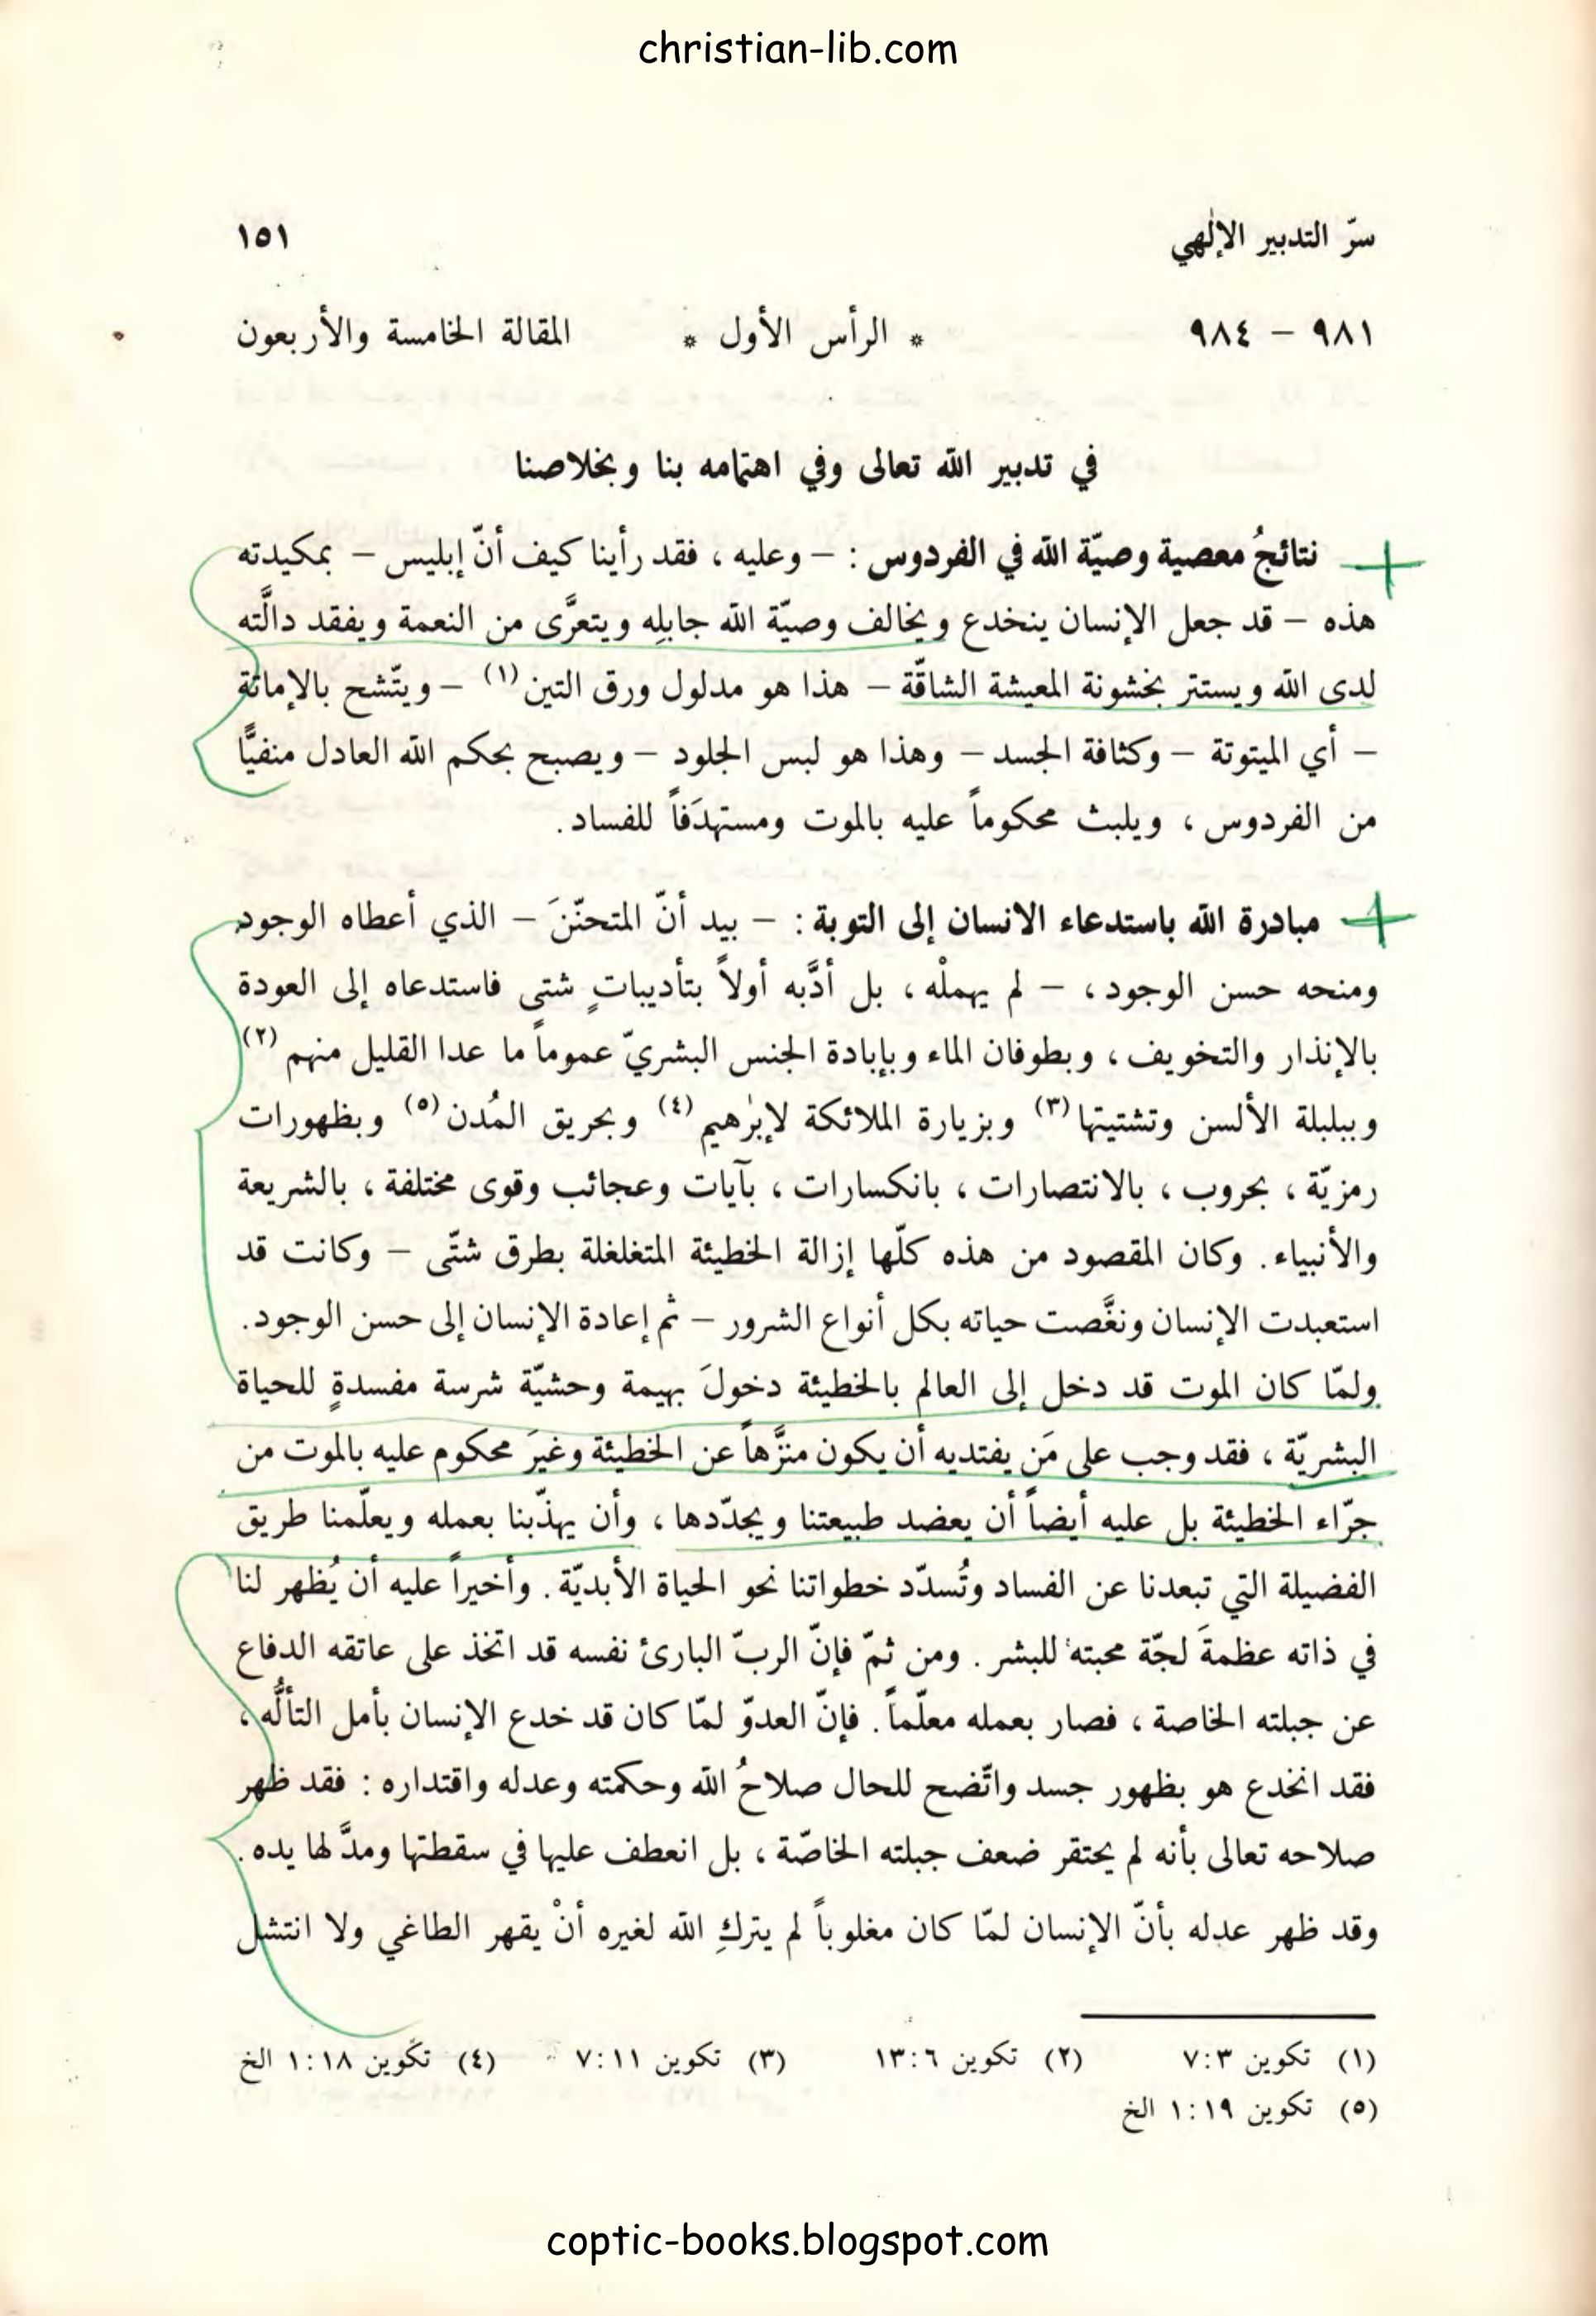 christian-lib.com
سرّ التدبير الإلٰهي ١٥١
٩٨١ – ٩٨٤ * الرأس الأول * المقالة الخامسة والأربعون
في تدبير الله تعالى وفي اهتمامه بنا وبخلاصنا
نتائجُ معصية وصيّة الله في الفردوس : – وعليه ، فقد رأينا كيف أنّ إبليس – بمكيدته
هذه – قد جعل الإنسان ينخدع ويخالف وصيّة الله جابلِه ويتعرَّى من النعمة ويفقد دالَّته
لدى الله ويستتر بخشونة المعيشة الشاقّة – هذا هو مدلول ورق التين (١) – ويتّشح بالإماتة
– أي الميتوتة – وكثافة الجسد – وهذا هو لبس الجلود – ويصبح بحكم الله العادل منفيًّا
من الفردوس ، ويلبث محكوماً عليه بالموت ومستهدَفاً للفساد .
مبادرة الله باستدعاء الانسان إلى التوبة : – بيد أنّ المتحنّنَ – الذي أعطاه الوجود
ومنحه حسن الوجود ، – لم يهملْه ، بل أدَّبه أولاً بتأديباتٍ شتى فاستدعاه إلى العودة
بالإنذار والتخويف ، وبطوفان الماء وبإبادة الجنس البشريّ عموماً ما عدا القليل منهم (٢)
وببلبلة الألسن وتشتيتها (٣) وبزيارة الملائكة لإبرٰهيم (٤) وبحريق المُدن (٥) وبظهورات
رمزيّة ، بحروب ، بالانتصارات ، بانكسارات ، بآيات وعجائب وقوى مختلفة ، بالشريعة
والأنبياء . وكان المقصود من هذه كلّها إزالة الخطيئة المتغلغلة بطرق شتّى – وكانت قد
استعبدت الإنسان ونغَّصت حياته بكل أنواع الشرور – ثم إعادة الإنسان إلى حسن الوجود .
ولمّا كان الموت قد دخل إلى العالم بالخطيئة دخولَ بهيمة وحشيّة شرسة مفسدةٍ للحياة
البشريّة ، فقد وجب على مَن يفتديه أن يكون منزَّهاً عن الخطيئة وغيرَ محكوم عليه بالموت من
جرّاء الخطيئة بل عليه أيضاً أن يعضد طبيعتنا ويجدّدها ، وأن يهذّبنا بعمله ويعلّمنا طريق
الفضيلة التي تبعدنا عن الفساد وتُسدّد خطواتنا نحو الحياة الأبديّة . وأخيراً عليه أن يُظهر لنا
في ذاته عظمةَ لجّة محبته للبشر . ومن ثمّ فإنّ الربّ البارئ نفسه قد اتخذ على عاتقه الدفاع
عن جبلته الخاصة ، فصار بعمله معلّماً . فإنّ العدوّ لمّا كان قد خدع الإنسان بأمل التألُّه ،
فقد انخدع هو بظهور جسد واتّضح للحال صلاحُ الله وحكمته وعدله واقتداره : فقد ظهر
صلاحه تعالى بأنه لم يحتقر ضعف جبلته الخاصّة ، بل انعطف عليها في سقطتها ومدَّ لها يده .
وقد ظهر عدله بأنّ الإنسان لمّا كان مغلوباً لم يتركِ الله لغيره أنْ يقهر الطاغي ولا انتشل
(١) تكوين ٧:٣ (٢) تكوين ١٣:٦ (٣) تكوين ٧:١١ (٤) تكوين ١:١٨ الخ
(٥) تكوين ١:١٩ الخ
coptic-books.blogspot.com